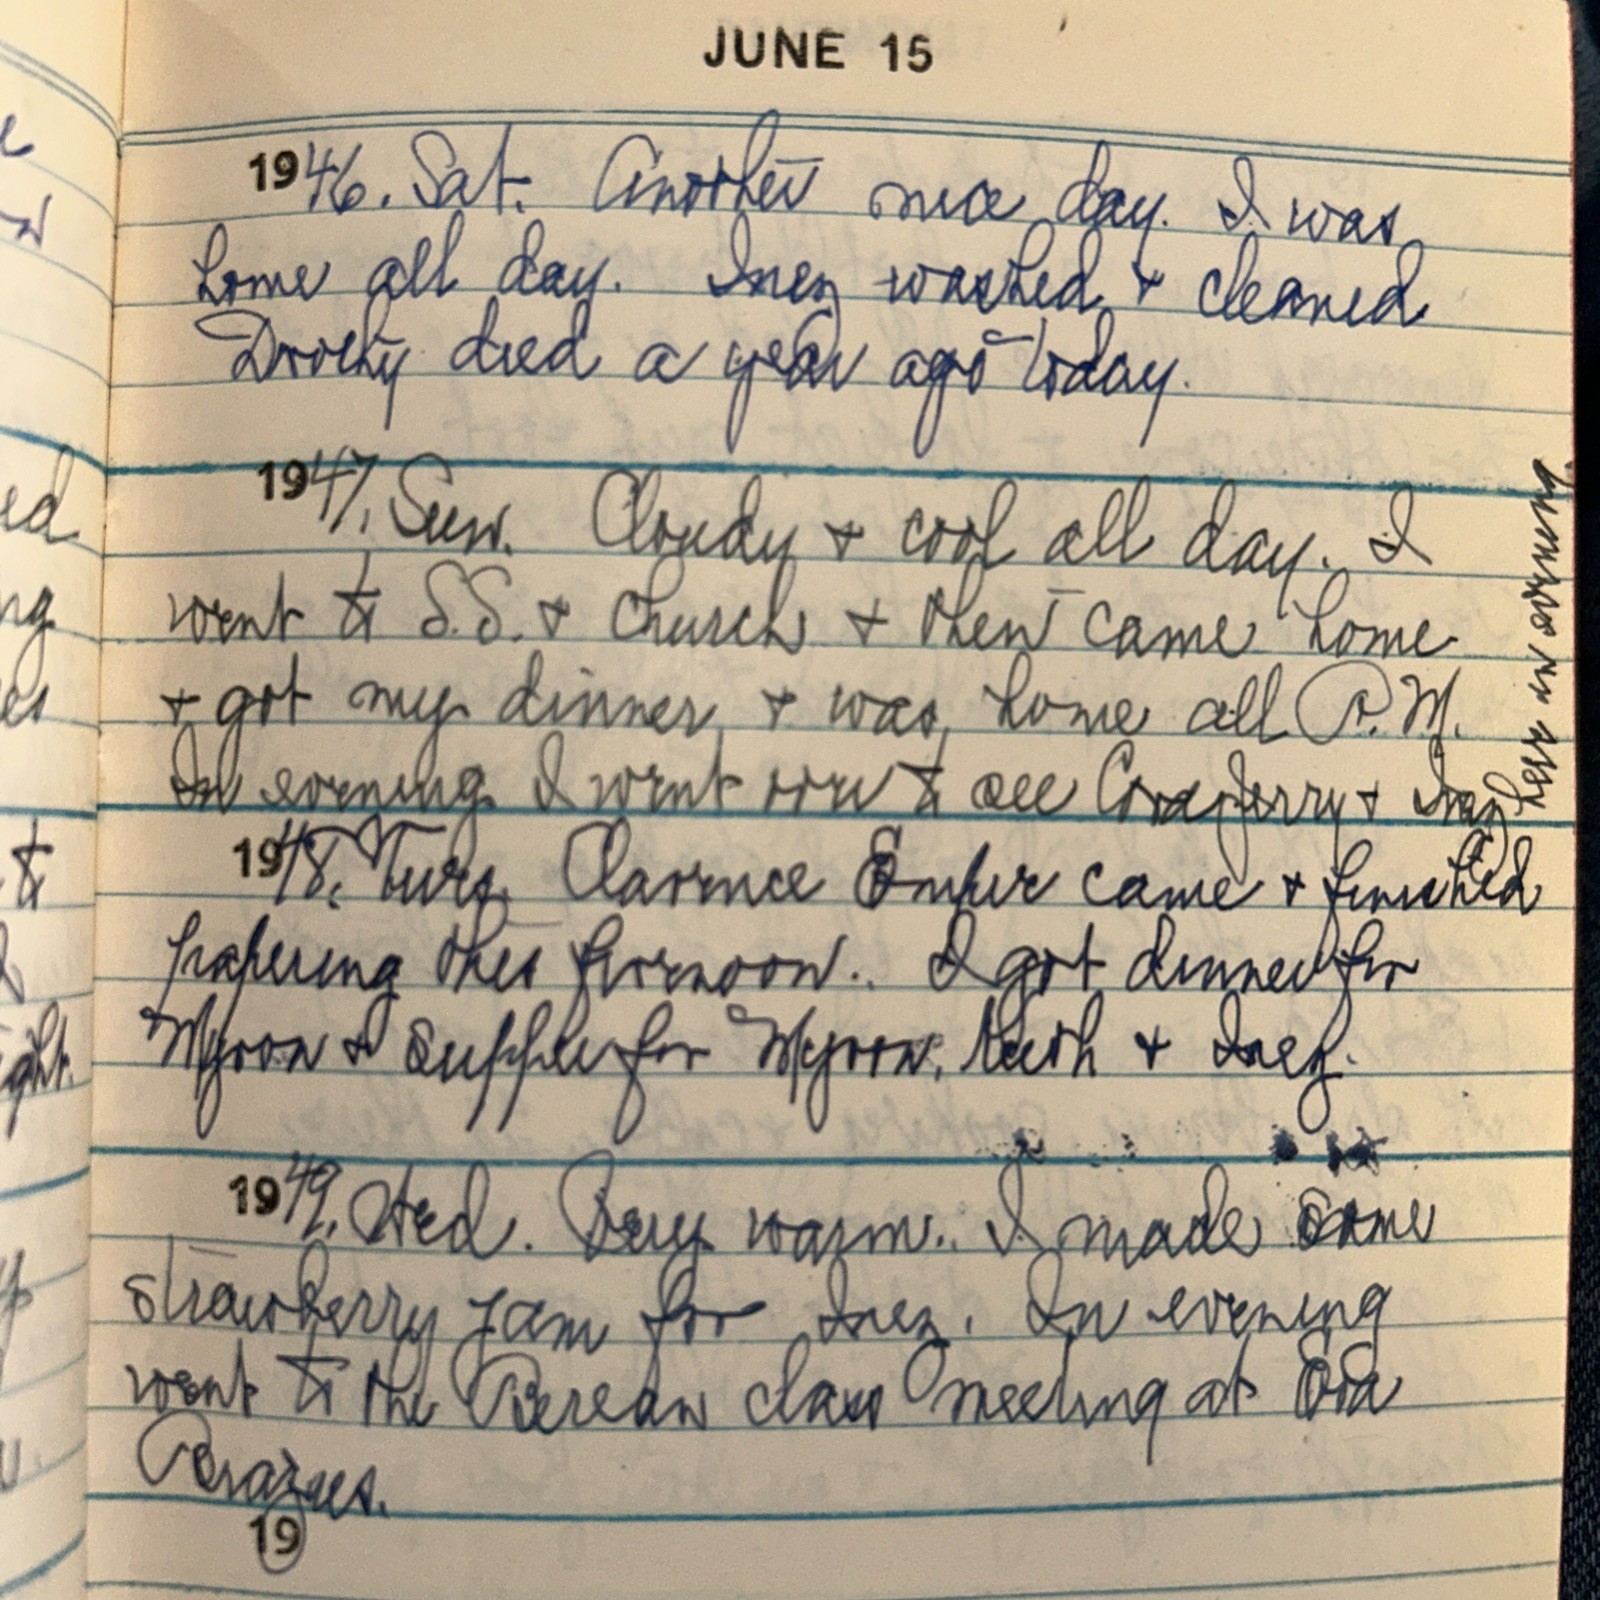 JUNE 15
1946. Sat. Another nice day. I was
home all day. Inez washed & cleaned
Dorothy died a year ago today.
1947. Sun. Cloudy & cool all day. I
went to S.S. & Church & then came home
& got my dinner & was home all P.M.
In evening I went over to see Cora Jerry & Inez
here in evening.
1948. Tues. Clarence came & finished
papering this forenoon. I got dinner for
Myron & supper for Myron, Ruth & Inez.
1949. Wed. Very warm. I made some
strawberry jam for Inez. In evening
went to the Berean class meeting at
19